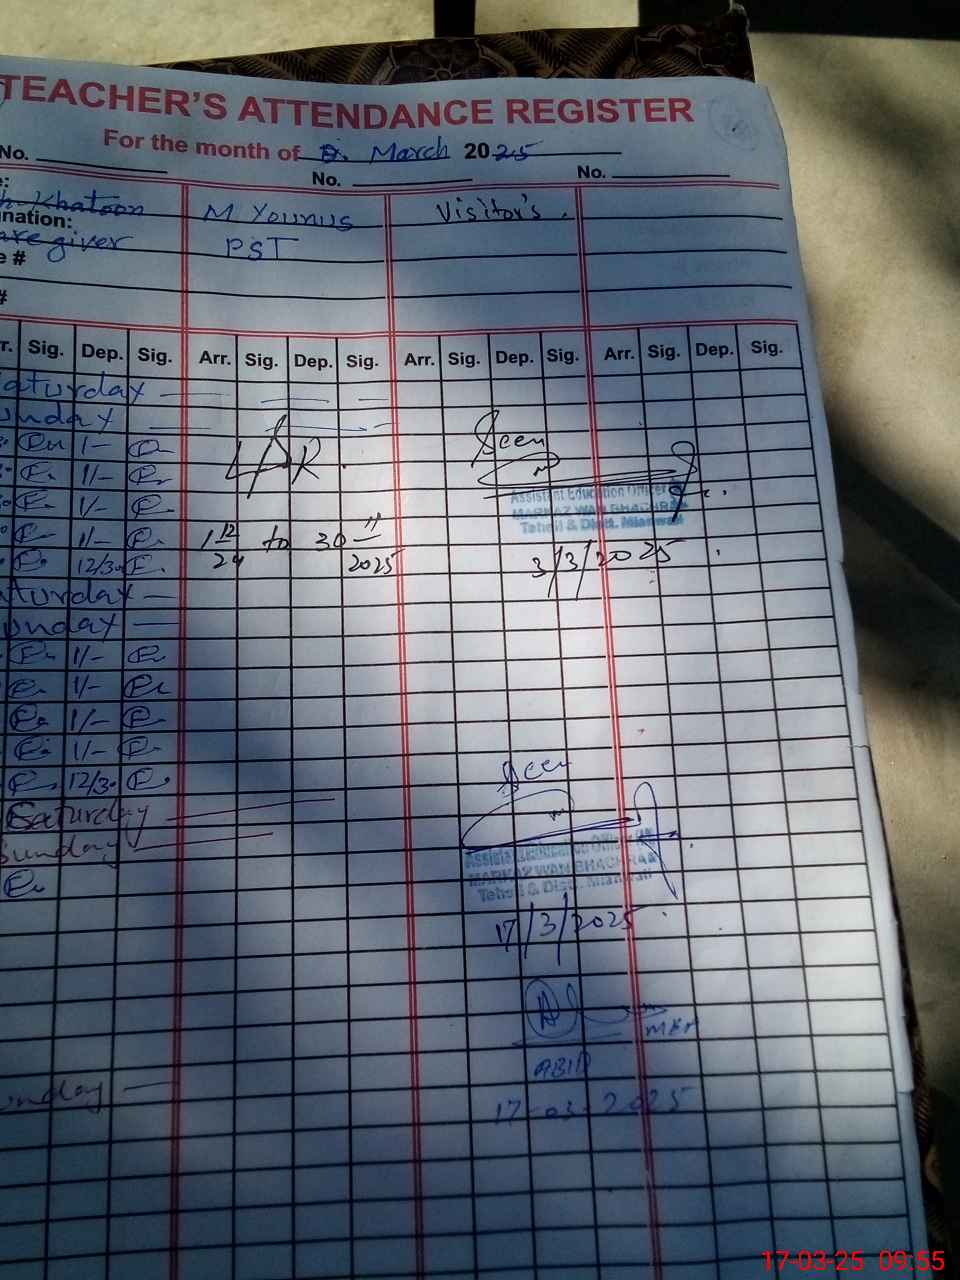 TEACHER'S ATTENDANCE REGISTER
For the month of March 2025
No. No. No.
Khatoon M Younus Visitor's.
nation:
care giver PST
e #
#
r. Sig. Dep. Sig. Arr. Sig. Dep. Sig. Arr. Sig. Dep. Sig. Arr. Sig. Dep. Sig.
Saturday
Sunday
1/-
Seen
1/-
Assistant Education Officer
1/-
MARKAZ WAN BHACHRAN
Tehsil & Distt. Mianwali
1/- 1 12/24 to 30 11/2025
12/30
3/3/2025
Saturday
Sunday
1/-
1/-
1/-
1/-
Seen
12/30
Saturday
Sunday
Assistant Education Officer
MARKAZ WAN BHACHRAN
Tehsil & Distt. Mianwali
17/3/2025
ABID
Sunday
17-03-2025
17-03-25 09:55